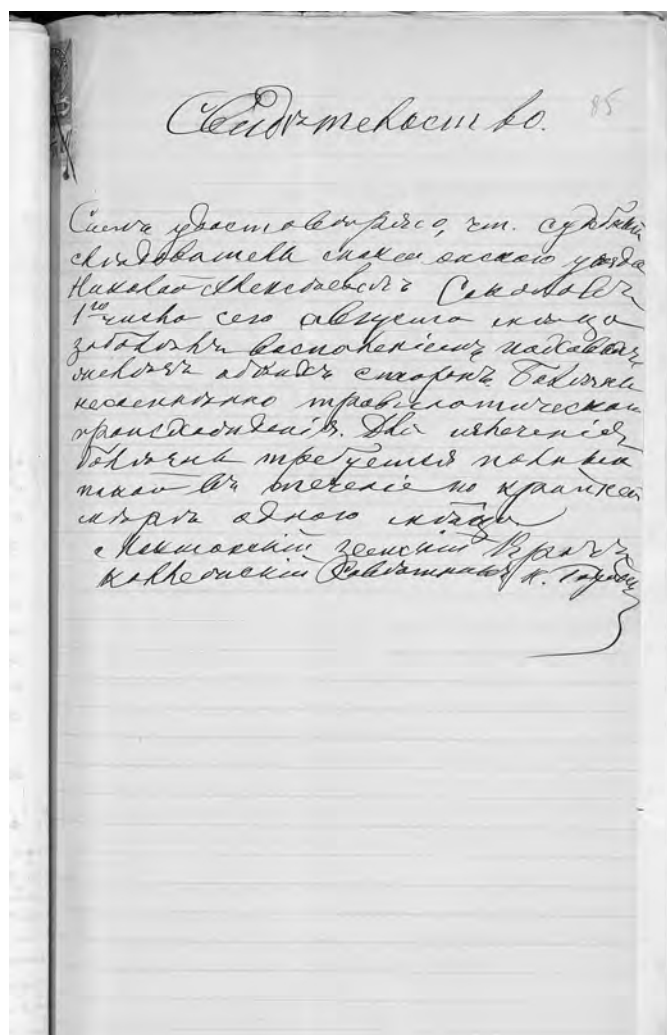 85
Свидѣтельство.
Симъ удостовѣряю, чт. судебный
слѣдователь уѣзда
Николай Алексѣевичъ Соколовъ
1го числа сего августа мѣсяца
заболѣлъ воспаленіемъ
обѣихъ сторонъ. Болѣзнь
несомнѣнно травматическаго
происхожденія. Для излеченія
болѣзни требуется полный
покой въ теченіе по крайней
мѣрѣ одного мѣсяца
земскій Врачъ
коллежскій Совѣтникъ К.